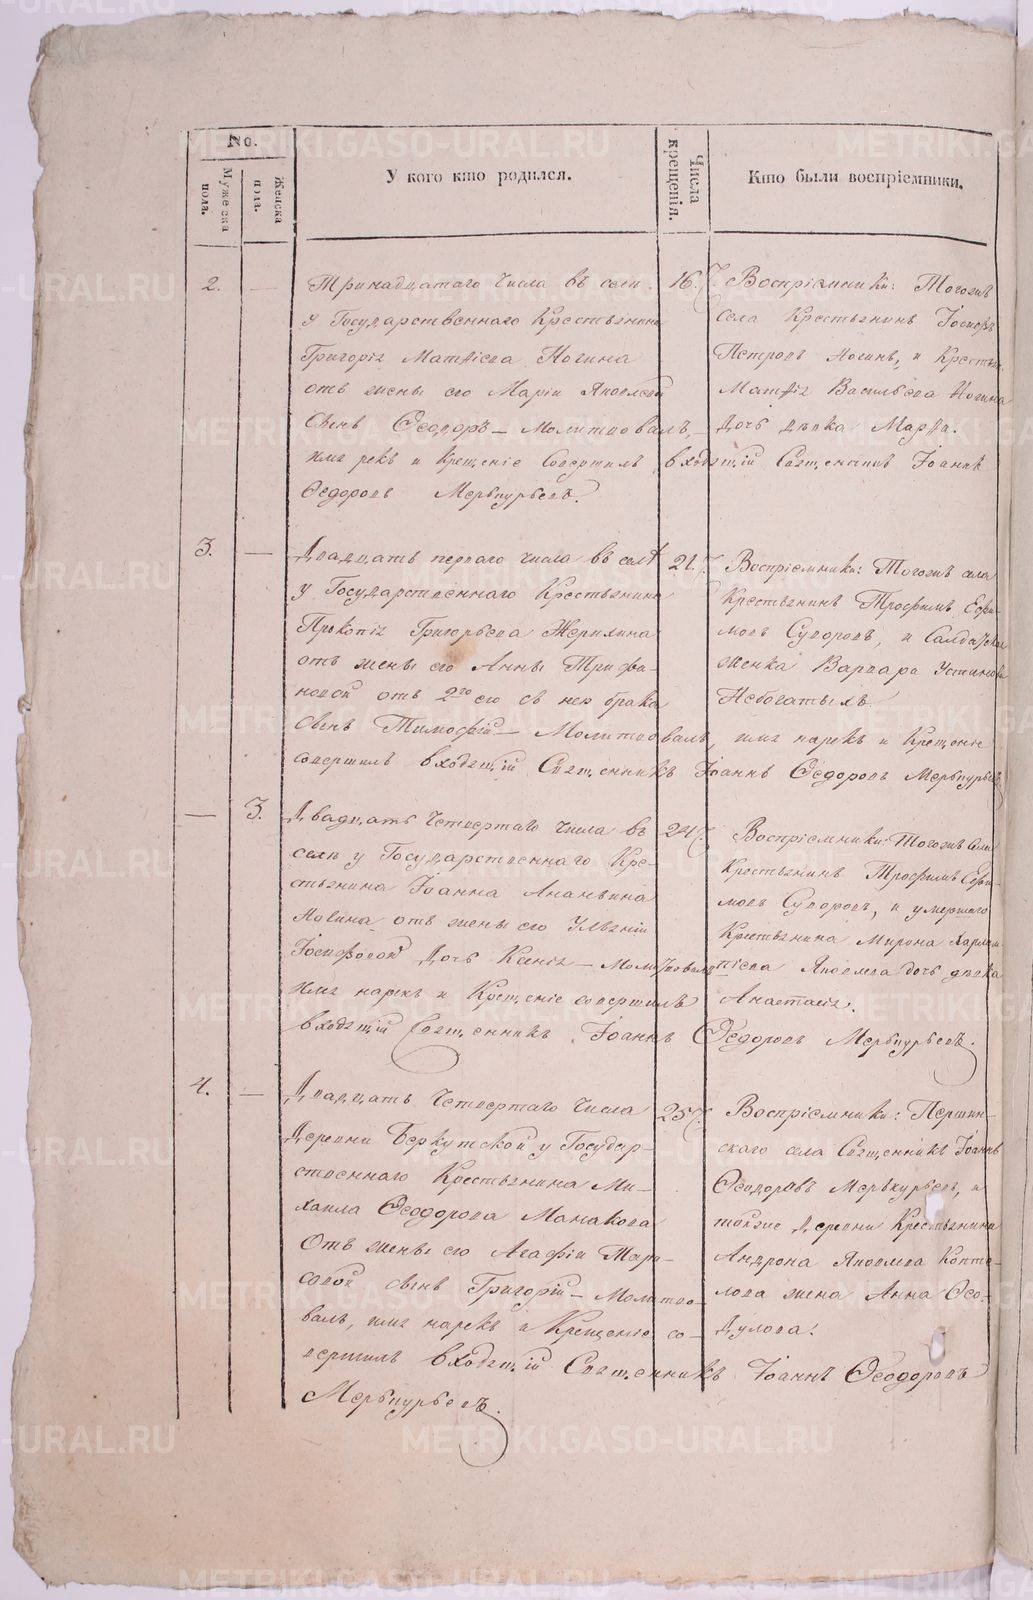 No.
Мужеска пола.
Женска пола.
У кого кто родился.
Числа крещенія.
Кто были воспріемники.
2. — Тринадцатаго числа въ селѣ
у Государственнаго Крестьянина
Григорія Матфіева Ногина
отъ жены его Маріи Яковлевой
сынъ Ѳеодоръ — Молитвовалъ,
имя рекъ и Крещеніе Совершилъ входящій Священникъ Іоаннъ
Ѳедоровъ Меркурьевъ.
16. Воспріемники: Тогожъ
села Крестьянинъ Іосифъ
Петровъ Ногинъ, и Крестья
Матфія Васильева Ногина
дочь дѣвка Марѳа.
3. — Двадцать перваго числа въ селѣ
у Государственнаго Крестьянина
Прокопія Григорьева
отъ жены его Анны Трифа-
новой отъ 2го его съ нею брака
сынъ Тимофей — Молитвовалъ, имя нарекъ и Крещеніе
совершилъ входящій Священникъ Іоаннъ Ѳедоровъ Меркурьевъ
21. Воспріемники: Тогожъ села
Крестьянинъ Трофимъ Ефи-
мовъ Суворовъ, и Салдатская
женка Варвара Устинова
Небогатыхъ.
— 3. Двадцать Четвертаго Числа въ
селѣ у Государственнаго Кре-
стьянина Іоанна Ананьина
Ногина отъ жены его Ульяніи
Іосифовой Дочь Ксенія — Молитвовалъ
Имя нарекъ и Крещеніе совершилъ
входящій Священникъ Іоаннъ Ѳедоровъ Меркурьевъ.
24. Воспріемники: Тогожъ Села
Крестьянинъ Трофимъ Ефи-
мовъ Суворовъ, и умершаго
Крестьянина Мирона Харлам
піева Яковлева дочь дѣвка
Анастасія.
4. — Двадцать Четвертаго Числа
Деревни Беркутской у Государ-
ственнаго Крестьянина Ми-
хаила Ѳеодорова Манакова
Отъ жены его Агафіи Тара-
совой сынъ Григорій — Молитво-
валъ, имя нарекъ и Крещеніе со-
вершилъ входящій Священникъ Іоаннъ Ѳеодоровъ
Меркурьевъ.
25. Воспріемники: Першин-
скаго села Священникъ Іоаннъ
Ѳеодоровъ Меркурьевъ, и
тойже Деревни Крестьянина
Андрона Яковлева Копте-
лова жена Анна Ѳео-
дулова.
METRIKI.GASO-URAL.RU